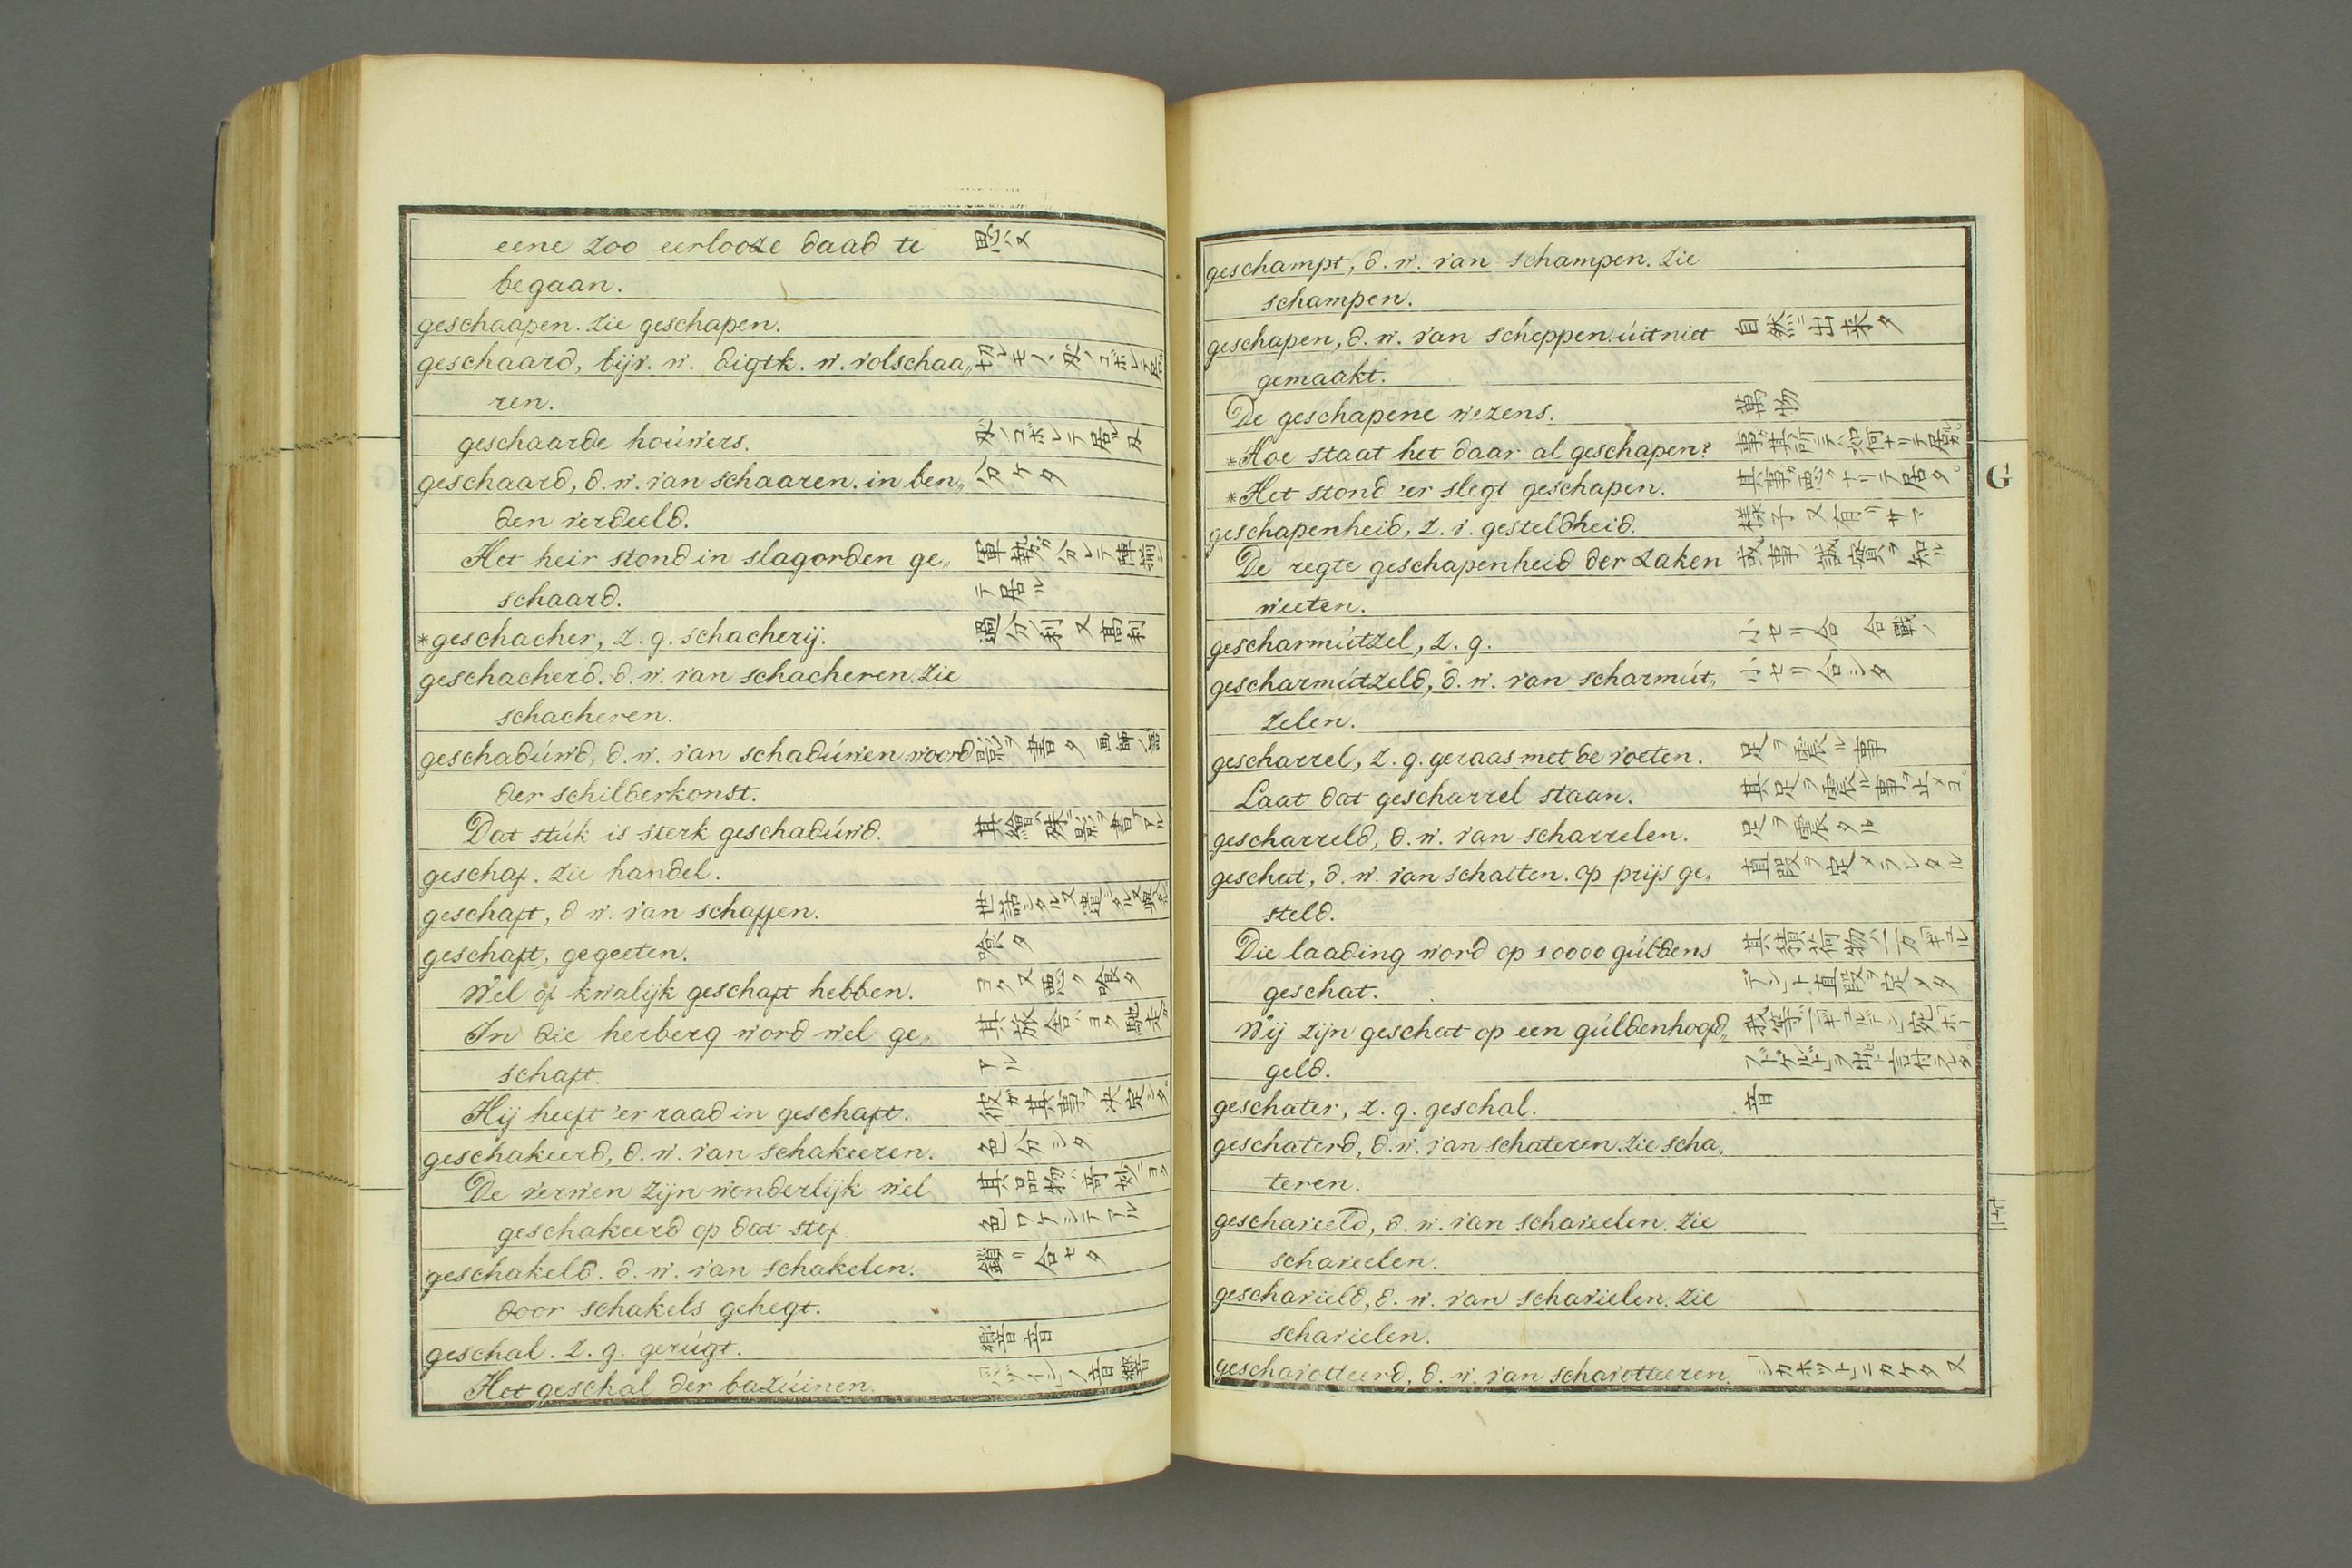 eene zoo eerlooze daad te 思ハヌ
begaan.
geschaapen. zie geschapen.
geschaard, bijv. w. digtk. w. volschaa„ 切レモノヽ刄ノコボレテ居
ren.
geschaarde hoúwers. 刄ノコボレテ居ル刄
geschaard, d. w. van schaaren. in ben„ 分ケタ
den verdeeld.
Het heir stond in slagorden ge„ 軍勢ガ分レテ陣
schaard. テ居ル
*geschacher, z. g. schacherij. 過分ノ利又高利
geschacherd. d. w. van schacheren. zie
schacheren.
geschadúwd, d. w. van schadúwen woord 影ヲ書タ画師ノ語
der schilderkonst.
Dat stúk is sterk geschadúwd. 其繪ハ殊ニ影ヲ書テアル
geschaf. zie handel.
geschaft, d w. van schaffen. 世話シタル又
geschaft, gegeeten. 喰タ
Wel of kwalijk geschaft hebben. ヨク又悪ク喰タ
In die herberg word wel ge„ 其旅舎ハヨク馳走ガ
schaft. アル
Hij heeft 'er raad in geschaft. 彼ガ其事ヲ决定シタ。
geschakeerd, d. w. van schakeeren. 色分シタ
De verwen zijn wonderlijk wel 其品物ハ奇妙ニヨク
geschakeerd op dat stof 色ワケシテアル
geschakeld. d. w. van schakelen. 鎖リ合セタ
door schakels gehegt.
geschal. z. g. gerúgt. 響音
Het geschal der bazúinen. ノ音響
geschampt, d. w. van schampen. zie
schampen.
geschapen, d. w. van scheppen. úit niet 自然ニ出来タ
gemaakt.
De geschapene wezens. 萬物
*Hoe staat het daar al geschapen? 事ガ其所ニテハ如何ナリテ居ルカ。
*Het stond 'er slegt geschapen. 其事ガ悪クナリテ居タ。
geschapenheid, z. v. gesteldheid. 様子又有リサマ
De regte geschapenheid der zaken 故事ノ誠實ヲ知ル
weeten.
gescharmútzel, z. g. 小セリ合 合戰ノ
gescharmútzeld, d. w. van scharmút„ 小セリ合シタ
zelen.
gescharrel, z. g. geraas met de voeten. 足ヲ震ル事
Laat dat gescharrel staan. 其足ヲ震ル事ヲ止メヨ。
gescharreld, d. w. van scharrelen. 足ヲ震タル
geschat, d. w. van schatten. op prijs ge„ 直段ヲ定メラレタル
steld.
Die laading word op 10000 gúldens 其積荷物ハ一万ギュル
geschat. デント直段ヲ定メタ
Wij zijn geschat op een gúldenhoofd„ 我等ハ一ギュルデン宛ホー
geld. フドゲルドヲ出セト言付ラレタ。
geschater, z. g. geschal. 音
geschaterd, d. w. van schateren. zie scha„
teren.
geschaveeld, d. w. van schaveelen. zie
schaveelen.
geschavield, d. w. van schavielen. zie
schavielen.
geschavotteerd, d. w. van schavotteeren. シカホットニカケタ又
G